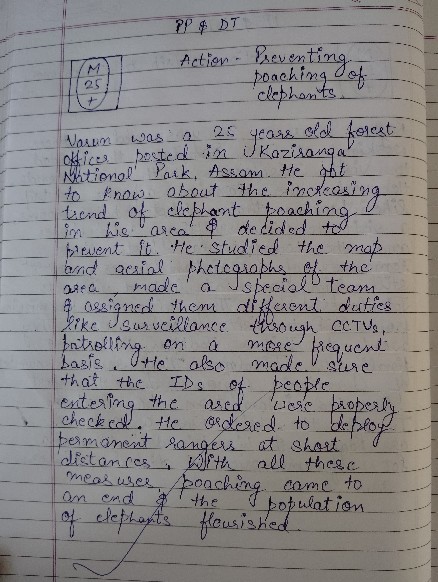 PP & DT
M
25
+
Action - Preventing
poaching of
elephants.
Varun was a 25 years old forest
officer posted in Kaziranga
National Park, Assam. He got
to know about the increasing
trend of elephant poaching
in his area & decided to
prevent it. He studied the map
and aerial photographs of the
area, made a special team
& assigned them different duties
like surveillance through CCTVs,
patrolling on a more frequent
basis. He also made sure
that the IDs of people
entering the area were properly
checked. He ordered to deploy
permanent rangers at short
distances. With all these
measures, poaching came to
an end & the population
of elephants flourished.